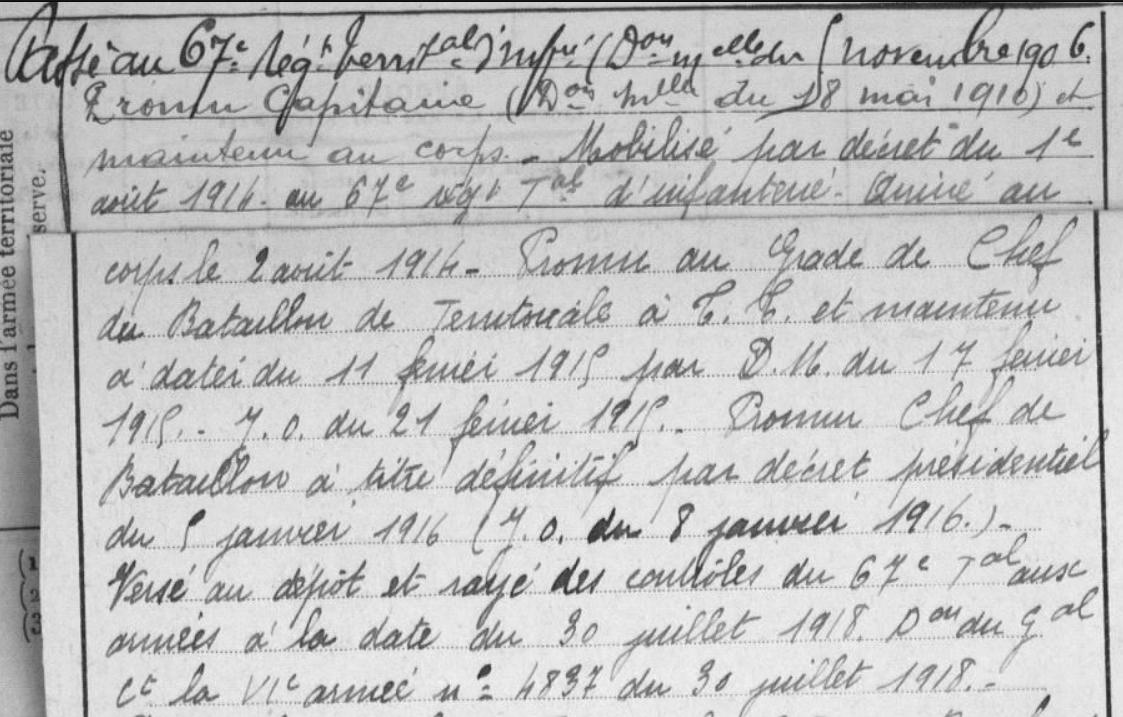 Passé au 67e Régt territal d'infrie (Don mlle du 5 novembre 1906.
Promu Capitaine (Don mlle du 18 mai 1910) et
maintenu au corps. - Mobilisé par décret du 1e
août 1914. au 67e régt Tal d'infanterie. Arrivé au
corps le 2 août 1914 - Promu au Grade de Chef
du Bataillon de Territoriale à T. T. et maintenu
à dater du 11 février 1915 par D.M. du 17 février
1915. - J.O. du 21 février 1915. - Promu Chef de
Bataillon à titre définitif par décret présidentiel
du 5 janvier 1916 (J.O. du 8 janvier 1916.) -
Versé au dépôt et rayé des contrôles du 67e Tal aux
armées à la date du 30 juillet 1918. Don du Gal
Ct la VIe armée n° 4837 du 30 juillet 1918. -
Dans l'armée territoriale
serve.
(1
(2
(3